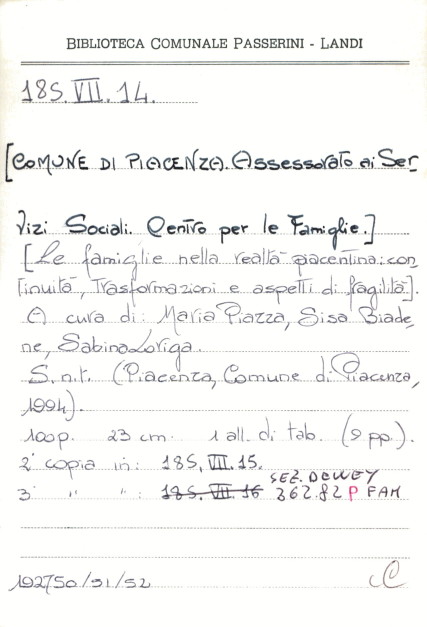 BIBLIOTECA COMUNALE PASSERINI - LANDI
185.VII.14.
[COMUNE DI PIACENZA. Assessorato ai Ser
vizi Sociali. Centro per le Famiglie.]
[Le famiglie nella realtà piacentina: con
tinuità, trasformazioni e aspetti di fragilità].
A cura di: Maria Piazza, Sisa Biade
ne, Sabina Loriga.
S.n.t. (Piacenza, Comune di Piacenza,
1994).
100 p. 23 cm. 1 all. di tab. (9 pp.).
2ª copia in: 185.VII.15.
SEZ. DEWEY
3ª " " : 185.VII.16 362.82 P FAM
192750/51/52